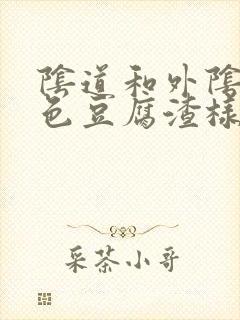 陰道和外陰
色豆腐渣樣
采茶小哥